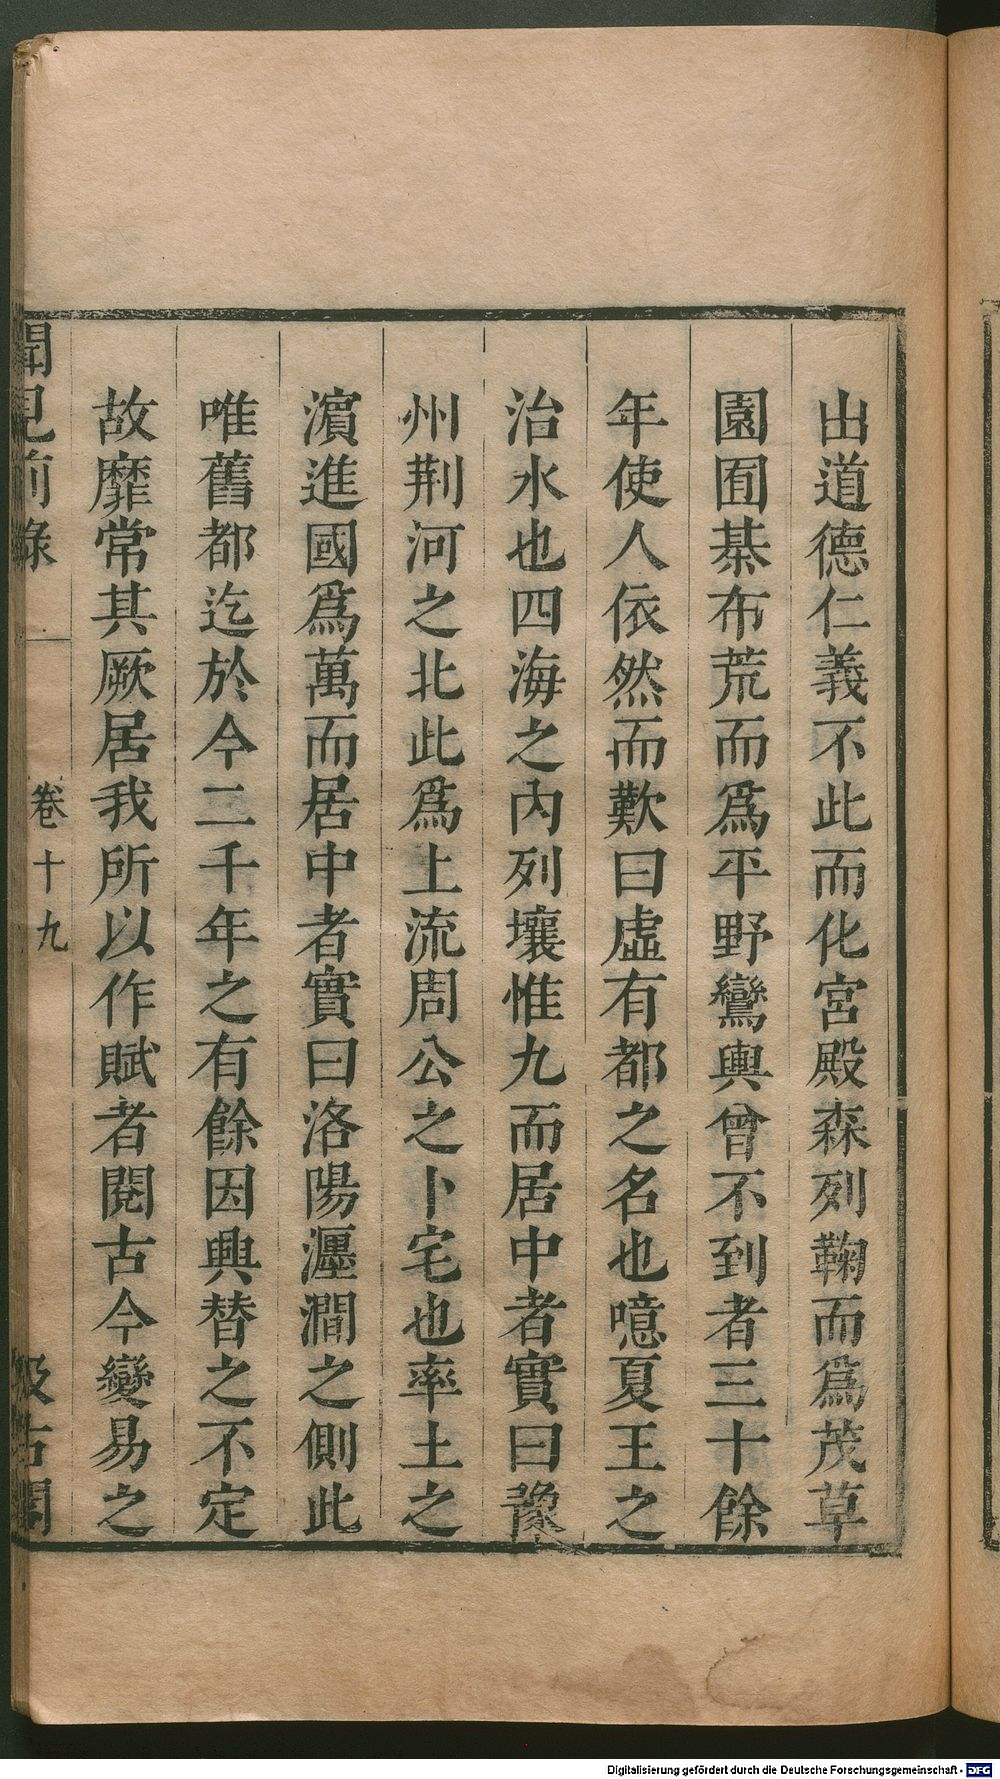 出道德仁義不此而化宮殿森列鞠而爲茂草
園囿棊布荒而爲平野鸞輿曾不到者三十餘
年使人依然而歎曰虛有都之名也噫夏王之
治水也四海之內列壤惟九而居中者實曰豫
州荆河之北此爲上流周公之卜宅也率土之
濵進國爲萬而居中者實曰洛陽瀍澗之側此
唯舊都迄於今二千年之有餘因興替之不定
故靡常其厥居我所以作賦者閱古今變易之
聞見前錄 卷十九 汲古閣
Digitalisierung gefördert durch die Deutsche Forschungsgemeinschaft - DFG